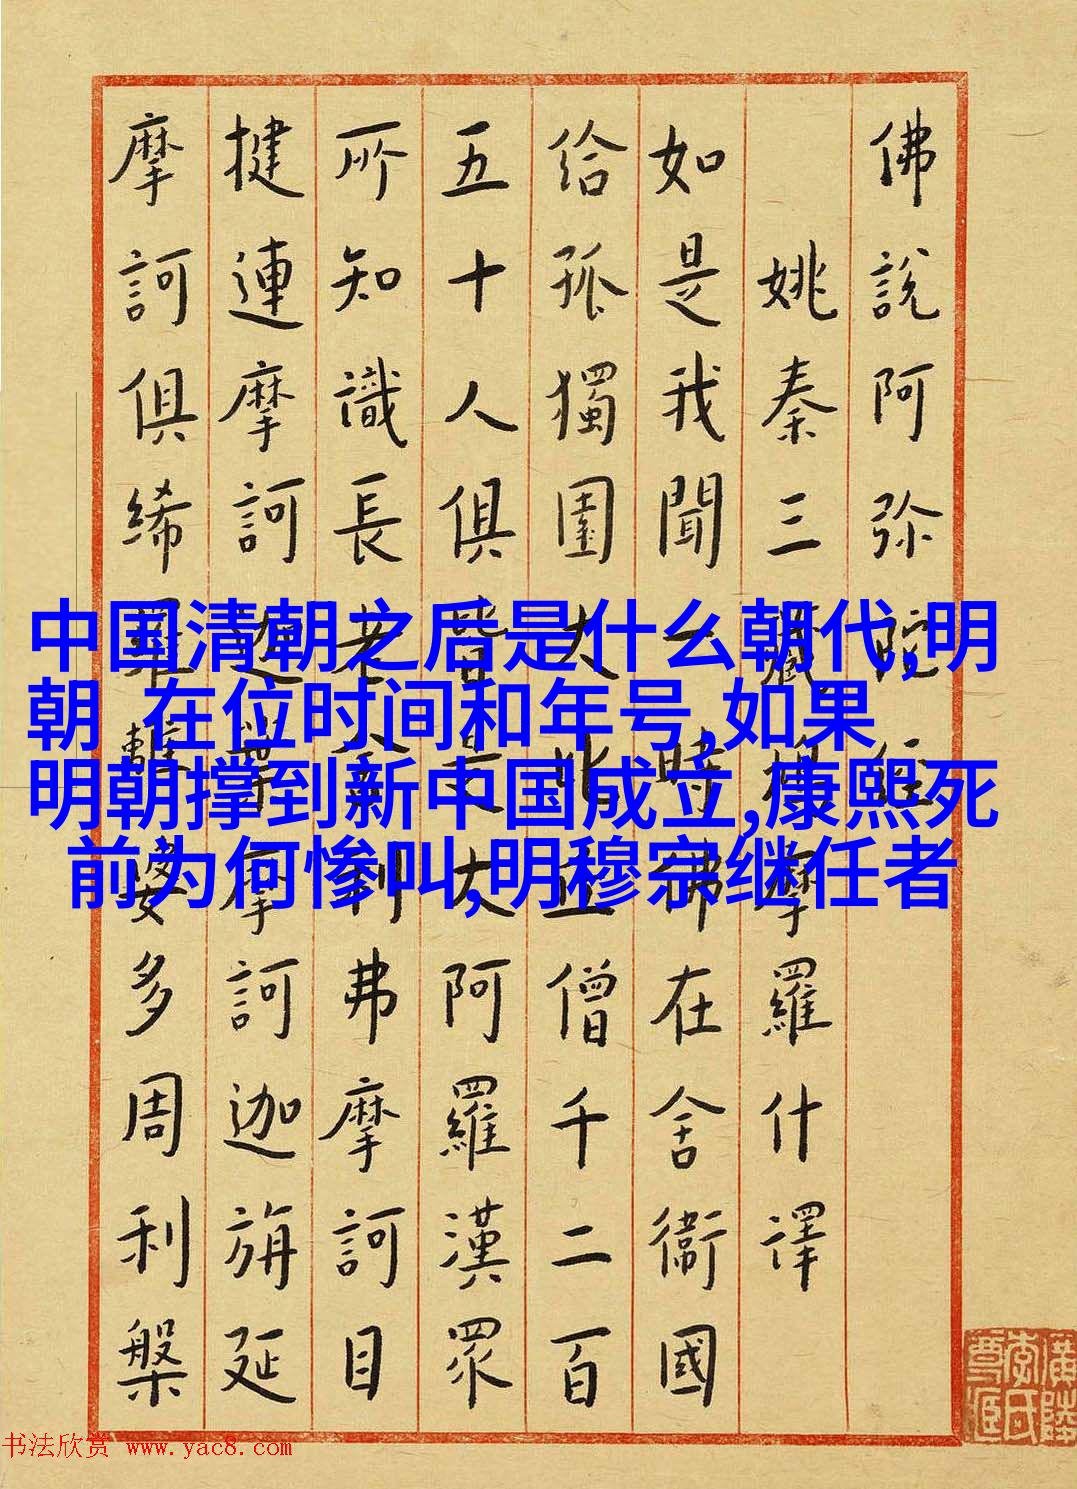 佛說阿弥陀經
姚秦三藏鳩摩羅什譯
如是我聞一時佛在舍衛國
给孤獨園大比丘僧千二百
五十人俱皆是大阿羅漢眾
所知識長老舍利弗摩訶目
揵連摩訶迦葉摩訶迦旃延
摩訶俱絺羅離婆多周利槃
中国清朝之后是什么朝代,明
朝 在位时间和年号,如果
明朝撑到新中国成立,康熙死
前为何惨叫,明穆宗继任者
书法欣赏 www.yac8.com